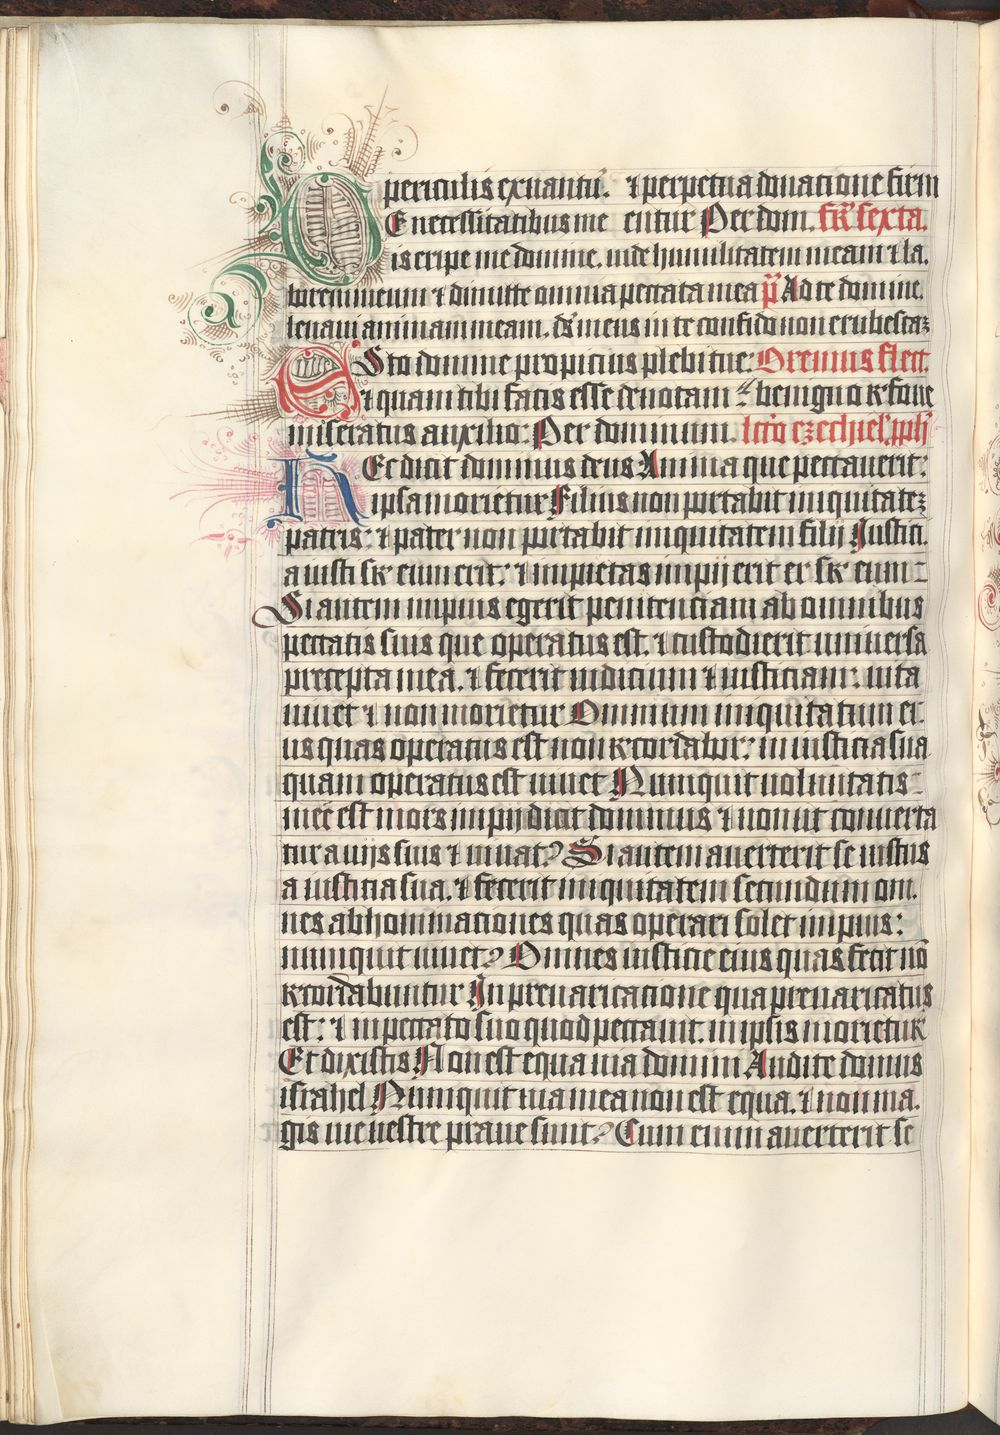 periculis exuantur. ⁊ perpetua donatione firm
E necessitatibus me entur Per dom. fr̄ sexta.
is eripe me domine. vide humilitatem meam ⁊ la.
borem meum ⁊ dimitte omnia peccata mea p̄ Ad te domine.
leuaui animam meam. ds̄ meus in te confido non erubescaꝫ
Esto domine propicius plebi tue: Oremus flect.
et quam tibi facis esse deuotam benigno refoue
miseratus auxilio: Per dominum. lc̄to ezechiel' pph'
Hec dicit dominus deus Anima que peccauerit:
ipsa morietur Filius non portabit iniquitateꝫ
patris: ⁊ pater non portabit iniquitatem filij Iustici.
a iusti sr̄ eum erit: ⁊ impietas impij erit er sr̄ eum:
Si autem impius egerit penitenciam ab omnibus
peccatis suis que operatus est. ⁊ custodierit uniuersa
precepta mea. ⁊ fecerit iudicium ⁊ iusticiam: uita
uiuet ⁊ non morietur Omnium iniquitatum ei.
us quas operatus est non recordabor: in iusticia sua
quam operatus est uiuet Numquit uoluntatis
mee est mors impij dicit dominus ⁊ non ut conuerta
tur a uijs suis ⁊ uiuat? Si autem auerterit se iustus
a iusticia sua. ⁊ fecerit iniquitatem secundum om.
nes abhominationes quas operari solet impius:
numquit uiuet? Omnes iusticie eius quas fecit nō
recordabuntur In preuaricatione qua preuaricatus
est: ⁊ in peccato suo quod peccauit. in ipsis morietur
Et dixistis Non est equa uia domini Audite domus
israhel Numquit uia mea non est equa. ⁊ non ma.
gis uie uestre praue sunt? Cum enim auerterit se